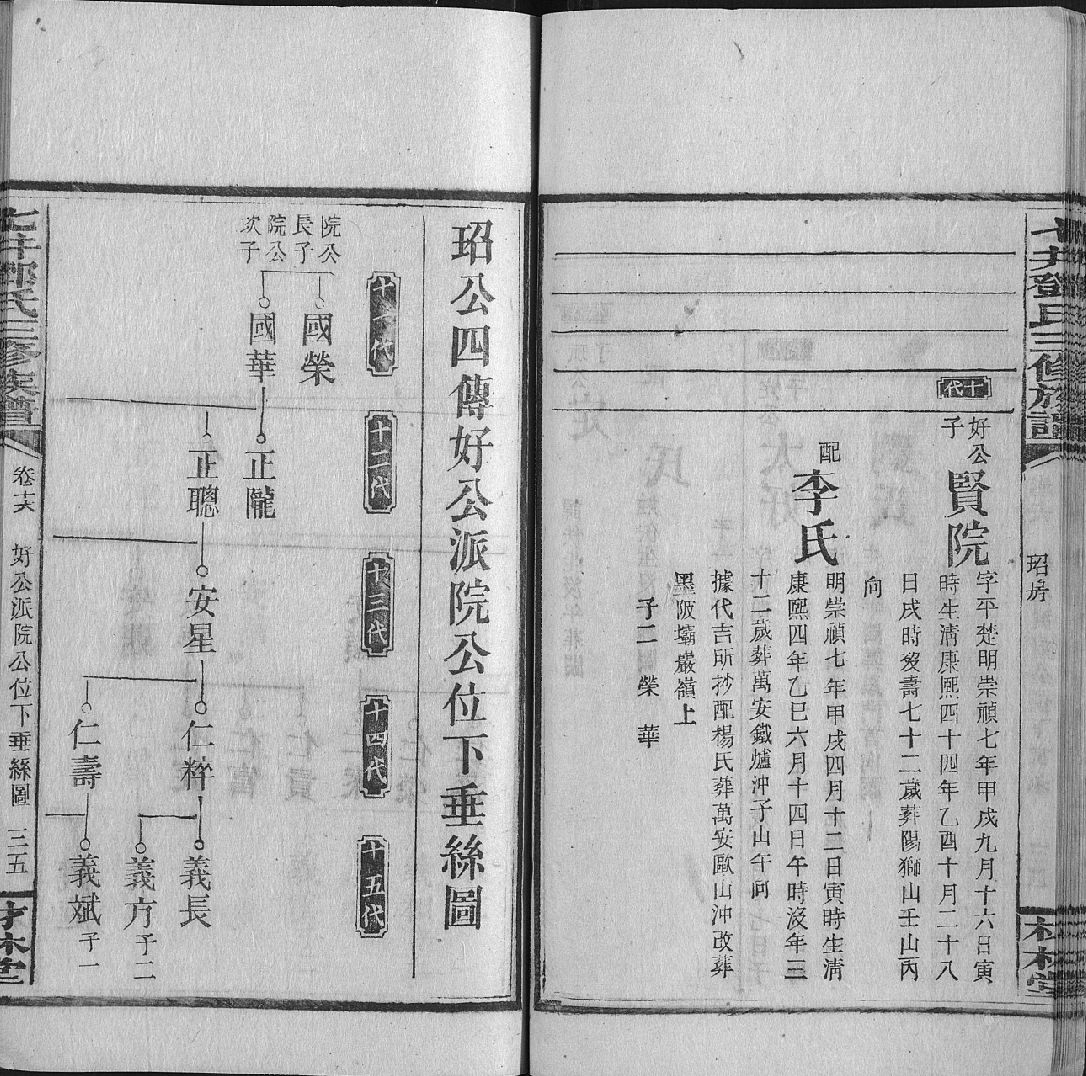 七井鄧氏三修族譜
玿房
材林堂
十代
好公子
賢院
字平楚明崇禎七年甲戌九月十六日寅
時生清康熙四十四年乙酉十月二十八
日戌時歿壽七十二歲葬陽獅山壬山丙
向
配
李氏
明崇禎七年甲戌四月十二日寅時生清
康熙四年乙巳六月十四日午時沒年三
十二歲葬萬安鐵爐沖子山午向
據代吉所抄配楊氏葬萬安歐山沖改葬
墨陂壩巖嶺上
子二榮 華
玿公四傳好公派院公位下垂絲圖
十一代
十二代
十三代
十四代
十五代
院公長子
國榮
院公次子
國華
正隴
正聰
安星
仁粹
仁壽
義長
義方子二
義斌子一
七井鄧氏三修族譜
卷十六
好公派院公位下垂絲圖
三五
材林堂